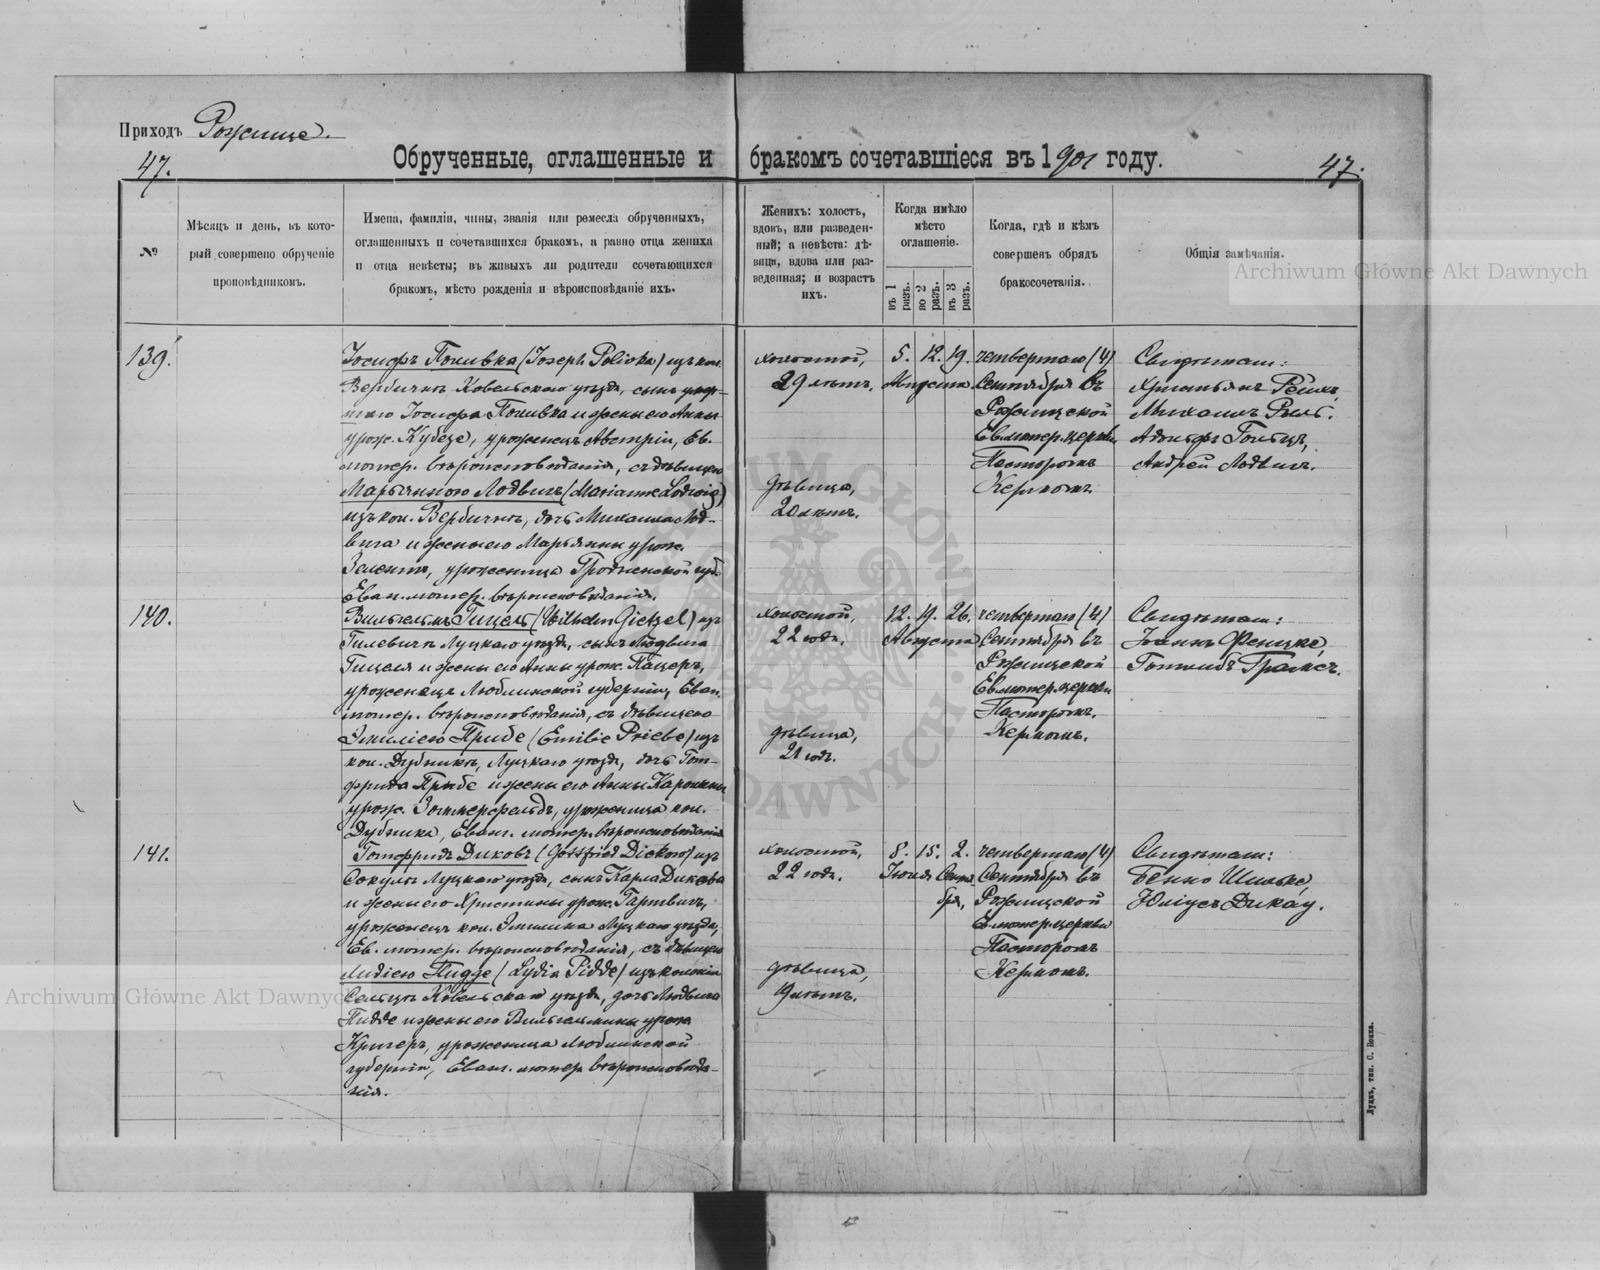 Приходъ Рожище.
47.
Обрученные, оглашенные и бракомъ сочетавшіеся въ 1901 году.
47.
№
Мѣсяцъ и день, въ кото-
рый совершено обрученіе
проповѣдникомъ.
Имена, фамиліи, чины, званія или ремесла обрученныхъ,
оглашенныхъ и сочетавшихся бракомъ, а равно отца жениха
и отца невѣсты; въ живыхъ ли родители сочетающихся
бракомъ, мѣсто рожденія и вѣроисповѣданіе ихъ.
Женихъ: холостъ,
вдовъ, или разведен-
ный; а невѣста: дѣ-
вица, вдова или раз-
веденная; и возрастъ
ихъ.
Когда имѣло
мѣсто
оглашеніе.
въ 1 разъ.
во 2 разъ.
въ 3 разъ.
Когда, гдѣ и кѣмъ
совершенъ обрядъ
бракосочетанія.
Общія замѣчанія.
Archiwum Główne Akt Dawnych
139.
Іосифъ Поливка (Joseph Polivka) изъ кол.
Вербичнъ Ковельскаго уѣзда, сынъ умер-
шаго Іосифа Поливка и жены его Анны
урож. Кубеце, уроженецъ Австріи, Ев.
лютер. вѣроисповѣданія, съ дѣвицею
Марьянною Лодвигъ (Marianne Lodwig)
изъ кол. Вербичнъ, дочь Михаила Лод-
вига и жены его Марьянны урож.
Зелентъ, уроженица Гродненской губ.
Еван. лютер. вѣроисповѣданія.
холостой,
29 лѣтъ.
дѣвица,
20 лѣтъ.
5. 12. 19.
Августа
четвертаго (4)
Сентября въ
Рожищской
Ев. лютер. церкви
Пасторомъ
Керномъ.
Свидѣтели:
Христьянъ Рейхъ,
Михаилъ Рило.
Адольфъ Гольцъ,
Андрей Лодвигъ.
140.
Вильгельмъ Гицель (Wilhelm Gietzel) изъ
Гилевичъ Луцкаго уѣзда, сынъ Людвига
Гицеля и жены его Анны урож. Пацеръ,
уроженецъ Люблинской губерніи, Еван.
лютер. вѣроисповѣданія, съ дѣвицею
Эмиліею Прибе (Emilie Priebe) изъ
кол. Дубникъ, Луцкаго уѣзда, дочь Гот-
фрида Прибе и жены его Анны Каролины
урож. Зоммерфельдъ, уроженица кол.
Дубники, Еванг. лютер. вѣроисповѣданія
холостой,
22 года.
дѣвица,
21 годъ.
12. 19. 26.
Августа
четвертаго (4)
Сентября въ
Рожищской
Ев. лютер. церкви
Пасторомъ.
Керномъ.
Свидѣтели:
Іоаннъ Феницке,
Готлибъ Грамсъ.
141.
Готфридъ Диковъ (Gottfried Dickow) изъ
Сокулъ Луцкаго уѣзда, сынъ Карла Дикова
и жены его Христины урож. Гартвигъ,
уроженецъ кол. Эмилина Луцкаго уѣзда,
Ев. лютер. вѣроисповѣданія, съ дѣвицею
Лидіею Пидде (Lydia Pidde) изъ колоніи
Сельцъ Ковельскаго уѣзда, дочь Людвига
Пидде и жены его Вильгельмины урож.
Кригеръ, уроженица Люблинской
губерніи, Еванг. лютер. вѣроисповѣда-
нія.
холостой,
22 года.
дѣвица,
19 лѣтъ.
8. 15. 2.
Іюля Сентя-
бря,
четвертаго (4)
Сентября въ
Рожищской
Ев. лютер. церкви
Пасторомъ
Керномъ.
Свидѣтели:
Бенно Шильке,
Юліусъ Дикау.
Archiwum Główne Akt Dawnych
Луцкъ, тип. С. Бокка.